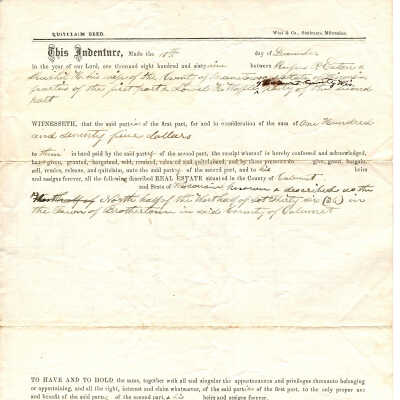 QUITCLAIM DEED. West & Co., Stationers, Milwaukee.
This Indenture, Made the day of December
in the year of our Lord, one thousand eight hundred and sixty nine between Rufus P. Eaton &
his wife of the County of and State of
parties of the first part & party of the second
part
WITNESSETH, that the said parties of the first part, for and in consideration of the sum of One Hundred
and seventy five dollars
to them in hand paid by the said party of the second part, the receipt whereof is hereby confessed and acknowledged,
have given, granted, bargained, sold, remised, released and quitclaimed, and by these presents do give, grant, bargain,
sell, remise, release, and quitclaim, unto the said party of the second part, and to his heirs
and assigns forever, all the following described REAL ESTATE situated in the County of Calumet
and State of Wisconsin known & described as the
North half of the North half of Lot thirty six (36) in
the town of Brothertown in said County of Calumet
TO HAVE AND TO HOLD the same, together with all and singular the appurtenances and privileges thereunto belonging
or appertaining, and all the right, interest and claim whatsoever, of the said parties of the first part, to the only proper use
and benefit of the said party of the second part, & his heirs and assigns forever.